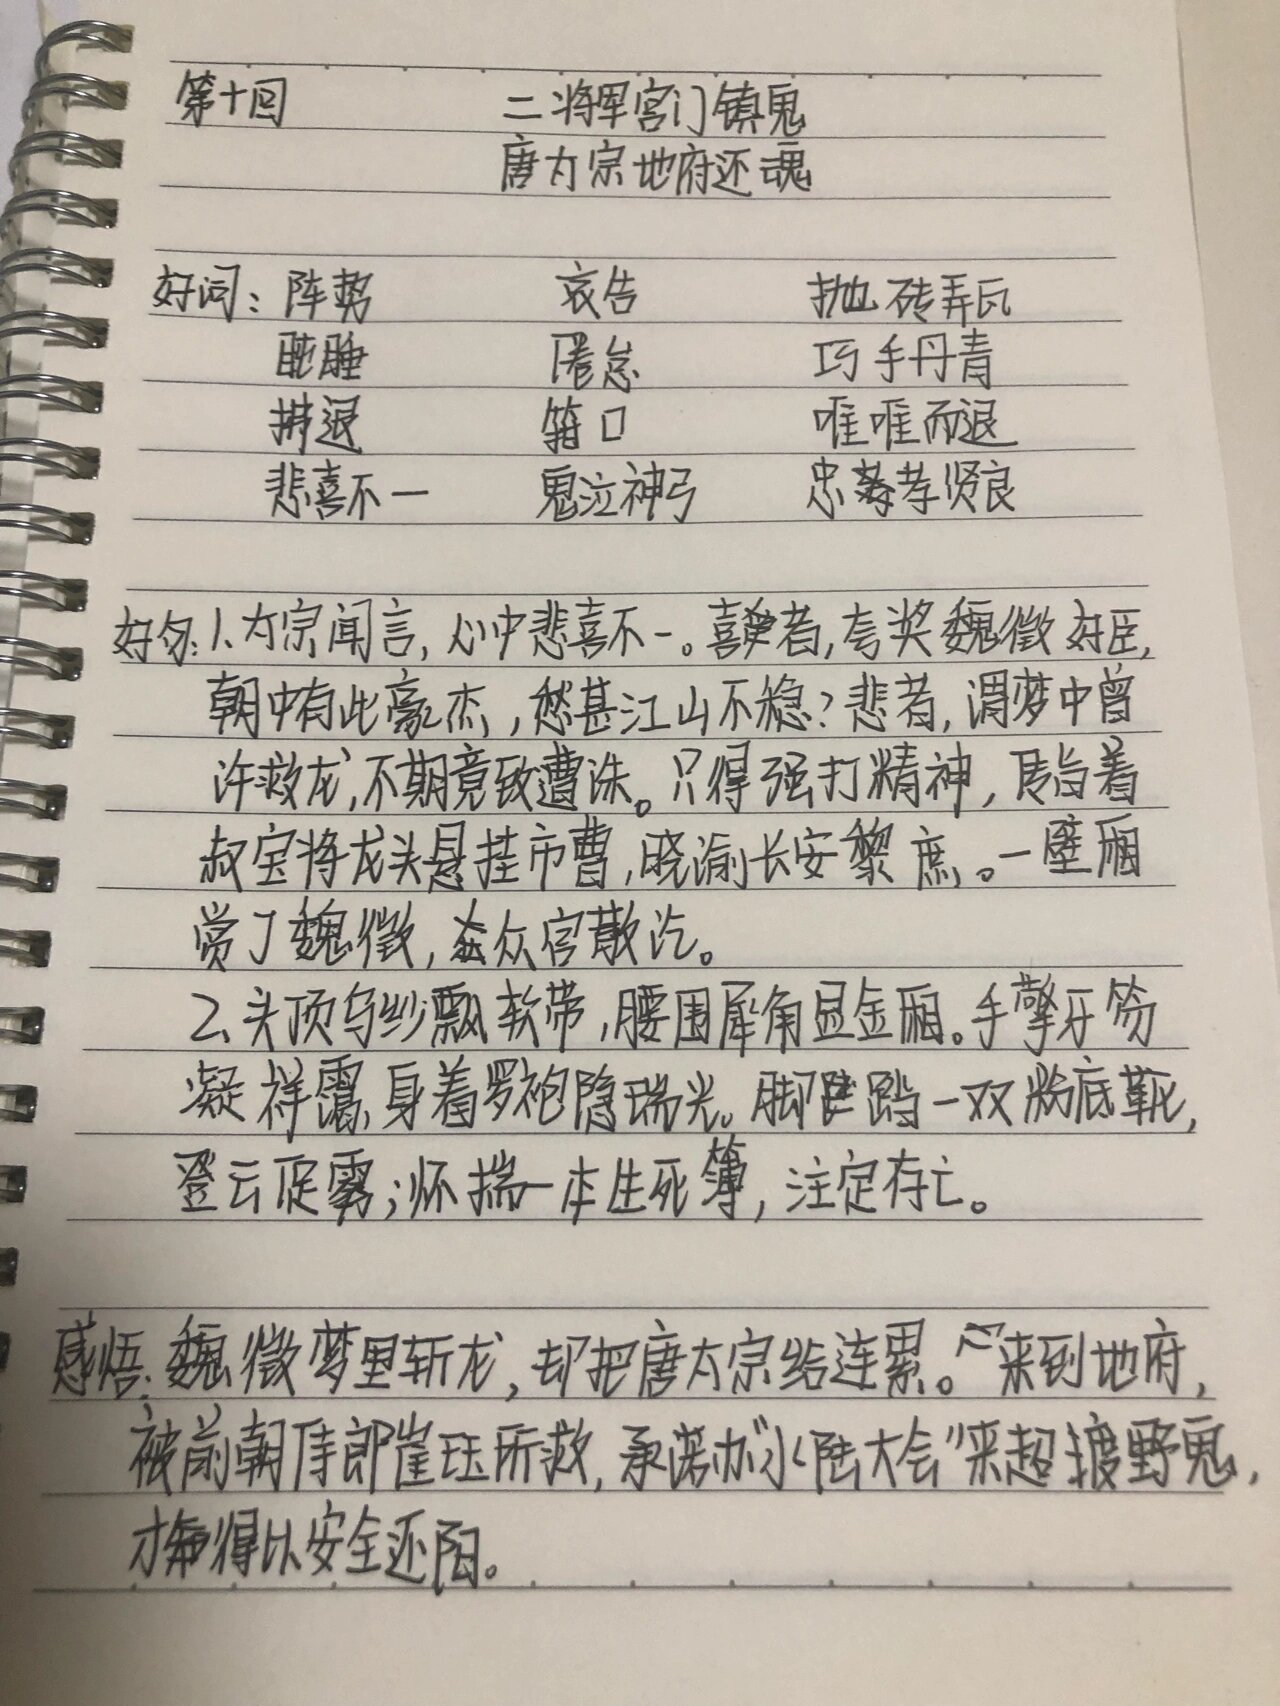 第十回 二将军宫门镇鬼
唐太宗地府还魂
好词：阵势 哀告 抛砖弄瓦
盹睡 倦怠 巧手丹青
拼退 箝口 唯唯而退
悲喜不一 鬼泣神号 忠孝贤良
好句：1、太宗闻言，心中悲喜不一。喜者，夸奖魏徵好臣，
朝中有此豪杰，愁甚江山不稳？悲者，谓梦中曾
许救龙，不期竟致遭诛。只得强打精神，传旨着
叔宝将龙头悬挂市曹，晓谕长安黎庶。一壁厢
赏了魏徵，众官散讫。
2、头顶乌纱飘软带，腰围犀角显金厢。手擎牙笏
凝祥霭，身着罗袍隐瑞光。脚踏一双粉底靴，
登云促雾；怀揣一本生死簿，注定存亡。
感悟：魏徵梦里斩龙，却把唐太宗给连累。来到地府，
被前朝侍郎崔珏所救，承诺办“水陆大会”来超渡野鬼，
才得以安全还阳。